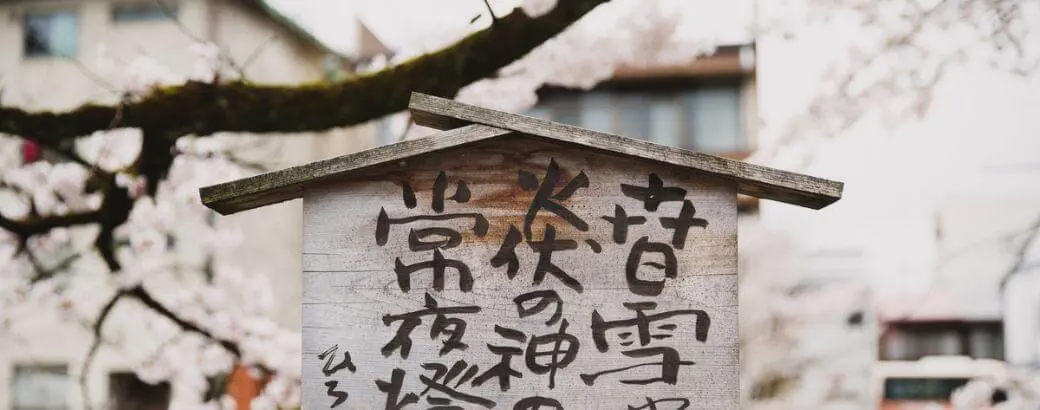 昔雪
炎伏の神の
常夜燈
ひろ